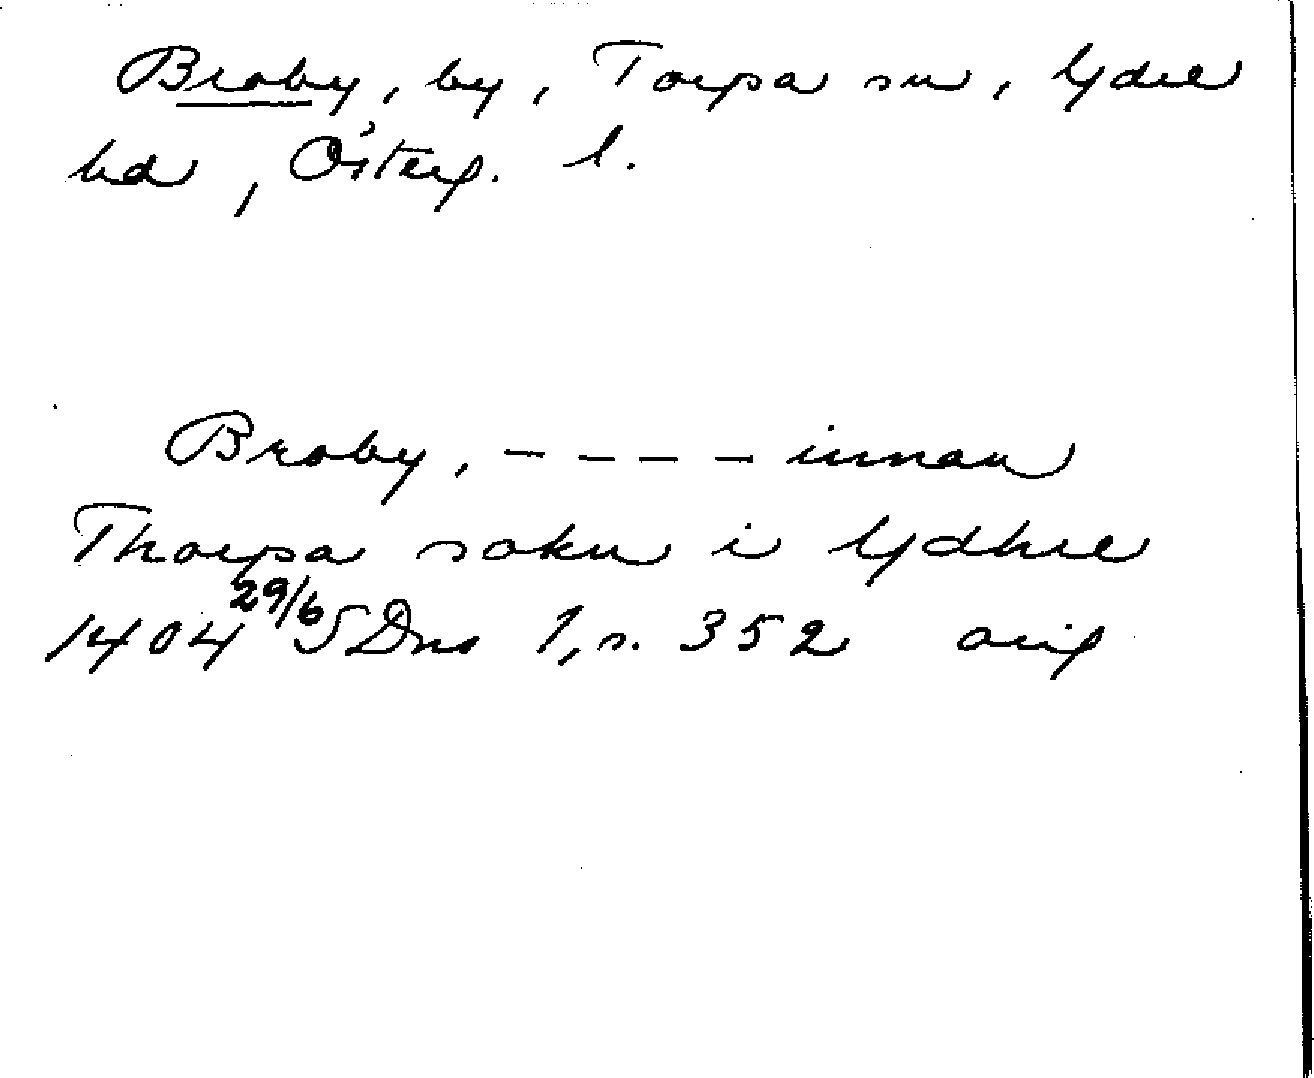 Broby, by, Torpa sn, Ydre
hd, Österg. l.
Broby, - - - - innan
Thorpa sokn i Ydhre
1404 29/6 SDns 1, s. 352 orig